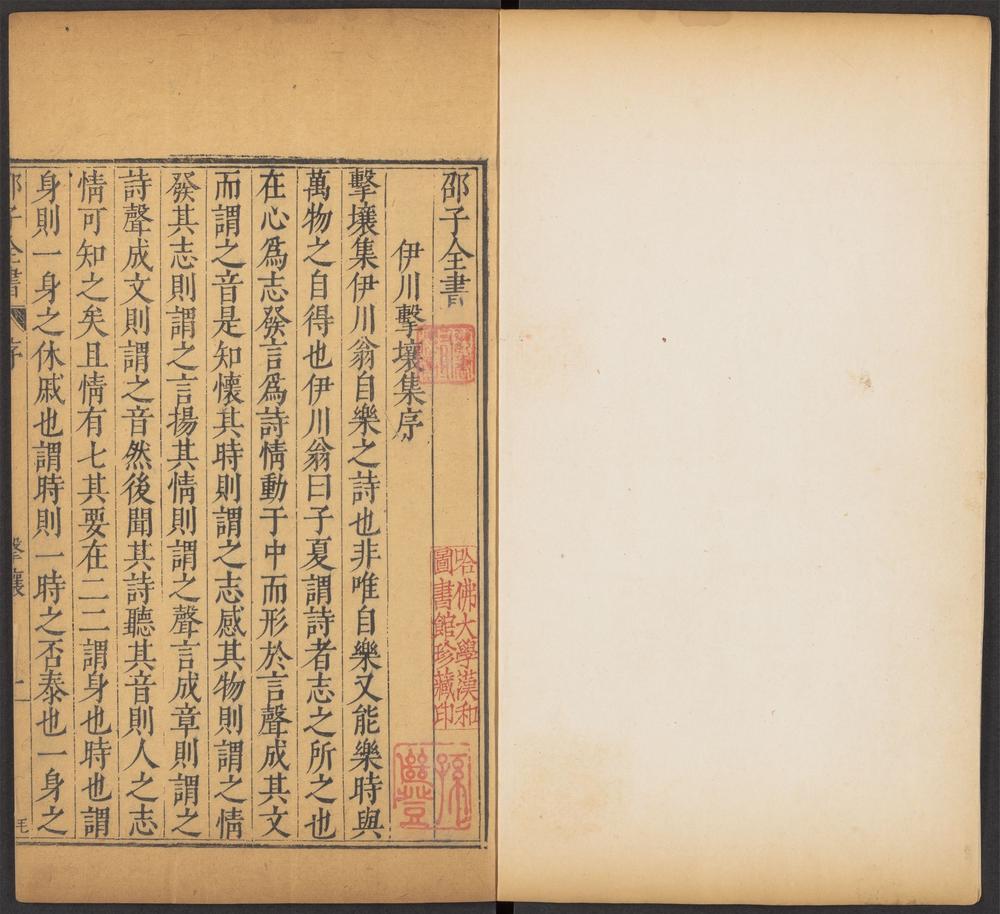 邵子全書
伊川擊壤集序
擊壤集伊川翁自樂之詩也非唯自樂又能樂時與
萬物之自得也伊川翁曰子夏謂詩者志之所之也
在心爲志發言爲詩情動于中而形於言聲成其文
而謂之音是知懷其時則謂之志感其物則謂之情
發其志則謂之言揚其情則謂之聲言成章則謂之
詩聲成文則謂之音然後聞其詩聽其音則人之志
情可知之矣且情有七其要在二二謂身也時也謂
身則一身之休戚也謂時則一時之否泰也一身之
邵子全書
序
擊壤
一
毛
哈佛大學漢和
圖書館珍藏印